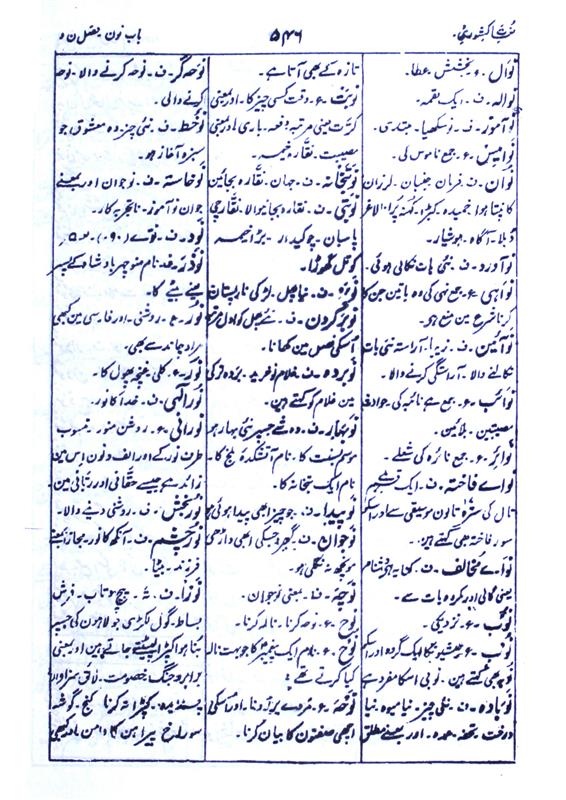 لغات کشوری
۵۴۶
باب نون فصل ن و
نوال ۔ ع ۔ بخشش ۔ عطا ۔
نوالہ ۔ ف ۔ ایک لقمہ ۔
نوآموز ۔ ف ۔ نوسکھیا ۔ مبتدی ۔
نوامیس ۔ ع ۔ جمع ناموس کی ۔
نوان ۔ ف ۔ خرمان جنبان ۔ لرزان
کانپتا ہوا خمیدہ ۔ کبڑا ۔ کہنہ پرانا لاغر
دبلا ۔ آگاہ ۔ ہوشیار ۔
نوآورد ۔ ف ۔ نئی بات نکالی ہوئی ۔
نواہی ۔ ع ۔ جمع نہی کی وہ باتین جن کا
کرنا شرع مین منع ہو ۔
نوآئین ۔ ف ۔ زیبا ۔ آراستہ نئی بات
نکالنے والا ۔ آراستگی کرنے والا ۔
نوائب ۔ ع ۔ جمع ہے نائبہ کی حوادث
مصیبتین ۔ بلائین ۔
نوائر ۔ ع ۔ جمع نائرہ کی شعلے ۔
نواے فاختہ ۔ ف ۔ ایک قسم ہے
تال کی سترہ تانون موسیقی سے اور اسکو
سور فاختہ بھی کہتے ہین ۔
نواے مخالف ۔ ف ۔ کنایہ ہے دشنام
یعنی گالی اور مکروہ بات سے ۔
نوب ۔ ع ۔ نزدیکی ۔
نوب ۔ ع ۔ حبشیونکا ایک گروہ اور اسکو
نوبہ بھی کہتے ہین ۔ نوبی اسکا مفرد ہے
نوبادہ ۔ ف ۔ نئی چیز ۔ نیا میوہ نیا
درخت ۔ تحفہ عمدہ ۔ اور بمعنے مطلق
تازہ کے بھی آتا ہے ۔
نوبت ۔ ع ۔ وقت کسی چیز کا ۔ اور بمعنی
کرّت یعنی مرتبہ و دفعہ ۔ باری اور بمعنی
مصیبت ۔ نقّارہ خیمہ ۔
نوبتخانہ ۔ ف ۔ جہان ۔ نقارہ بجائین
نوبتی ۔ ف ۔ نقارہ بجانیوالا ۔ نقارچی
پاسبان ۔ چوکیدار ۔ بڑا خیمہ
کوتل گھوڑا ۔
نوبر ۔ ف ۔ نیا پھل ۔ لڑکی نارپستان
نوبر کردن ۔ ف ۔ نئے پھل کو اول مرتبہ
اسکی فصل مین کھانا ۔
نوبردہ ۔ ف ۔ غلام نوخرید ۔ بردہ ترکی
مین غلام کو کہتے ہین ۔
نوبہار ۔ ف ۔ وہ شے جسپر نئی بہار ہو
موسم بسنت کا ۔ نام آتشکدۂ بلخ کا ۔
نام ایک بتخانہ کا ۔
نوپیدا ۔ ف ۔ جو چیز ابھی پیدا ہوئی ہو
نوجوان ۔ ف ۔ گبھرو جسکی ابھی داڑھی
مونچھ نہ نکلی ہو ۔
نوچہ ۔ ف ۔ بمعنی نوجوان ۔
نوح ۔ ع ۔ نوحہ کرنا ۔ نالہ کرنا ۔
نوح ۔ ع ۔ نام ایک پیغمبر کا جو بہت نالہ
کیا کرتے تھے ۔
نوحہ ۔ ع ۔ مردے پر رونا ۔ اور اسکی
اچھی صفتون کا بیان کرنا ۔
نوحہ گر ۔ ف ۔ نوحہ کرنے والا ۔ نوحہ
کرنے والی ۔
نوخط ۔ ف ۔ نئی چیز و وہ معشوق جو
سبزہ آغاز ہو ۔
نوخاستہ ۔ ف ۔ نوجوان اور بمعنے
جوان نوآموز ۔ ناتجربہ کار ۔
نود ۔ ف ۔ نوے (۹۰)
نوذر ۔ ف ۔ نام منوچہر بادشاہ کے پسر
یعنے بیٹے کا ۔
نور ۔ ع ۔ روشنی ۔ اور فارسی مین کبھی
مراد چاند سے بھی ۔
نور ۔ ع ۔ کلی غنچہ پھول کا ۔
نور الٰہی ۔ ف ۔ خدا کا نور ۔
نورانی ۔ ع ۔ روشن منور ۔ منسوب
طرف نور کے اور الف و نون اس مین
زائد ہے جیسے حقّانی اور ربّانی مین
نوربخش ۔ ف ۔ روشنی دینے والا ۔
نورچشم ۔ ف ۔ آنکھ کا نور ۔ مجازاً بمعنے
فرزند ۔ بیٹا ۔
ف ۔ تہ ۔ پیچ و تاب ۔ فرش
بساط ۔ گول لکڑی جولاہون کی جسپر
بنا ہوا کپڑا لپیٹتے جاتے ہین اور بمعنی
برابر و جنگ خصومت ۔ لائق سزاوار
پسندیدہ ۔ کپڑا تہ کرنا ۔ کنج ۔ گوشہ
سوراخ پیراہن کا دامن